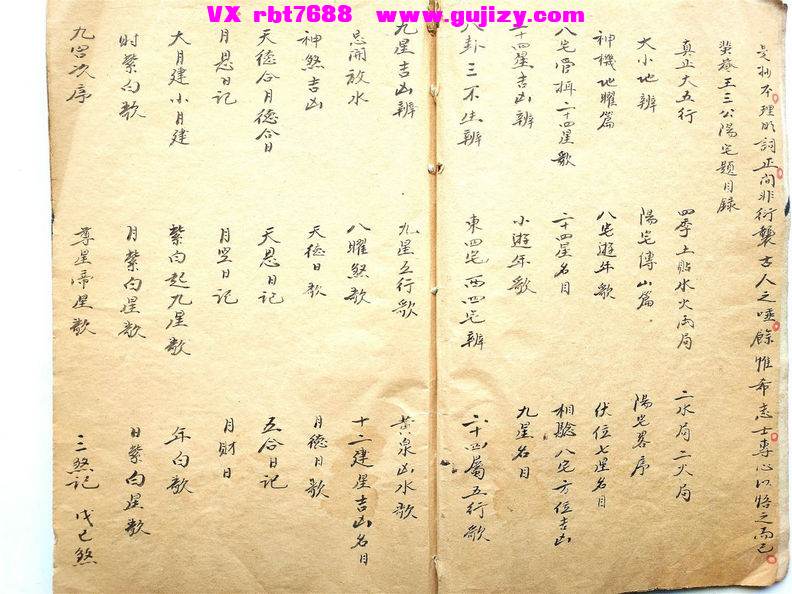 VX rbt7688 www.gujizy.com
是抄本理明詞正間非衍襲古人之唾餘惟希志士專心以悟之而已
王三公陽宅題目錄
真正大五行 四季土貼水火兩局 二水局二火局
大小地辨 陽宅傳山篇 陽宅畧序
神機地曜篇 八宅遊年歌 伏位七星名目
八宅管揖二十四星歌 二十四星名目 相騐八宅方位吉凶
二十四星吉凶辨 小遊年歌 九星名目
八卦三不生辨 東四宅西四宅辨 二十四屬五行歌
九星吉凶辨 九星五行歌 黃泉山水歌
忌開放水 八曜煞歌 十二建星吉凶名目
神煞吉凶 天德日歌 月德日歌
天德合月德合日 天恩日記 五合日記
月恩日記 月空日記 月財日
大月建小月建 紫白起九星歌 年白歌
時紫白歌 月紫白星歌 日紫白星歌
九宮次序 尊星帝星歌 三煞記 戊己煞